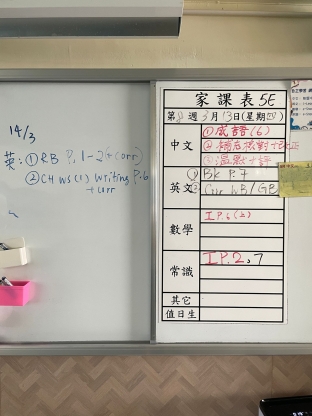 14/3
英：① RB P.1-2 (+corr)
② CH WS(1) Writing P.6
+ corr
家課表 5E
第 週 3月13日(星期四)
中文
① 成語(6)
② 補充核對+改正
③ 溫默+評
英文
① Bk P.7
② Corr WB/GB
數學
I P.6(上)
常識
I P.2, 7
其它
值日生